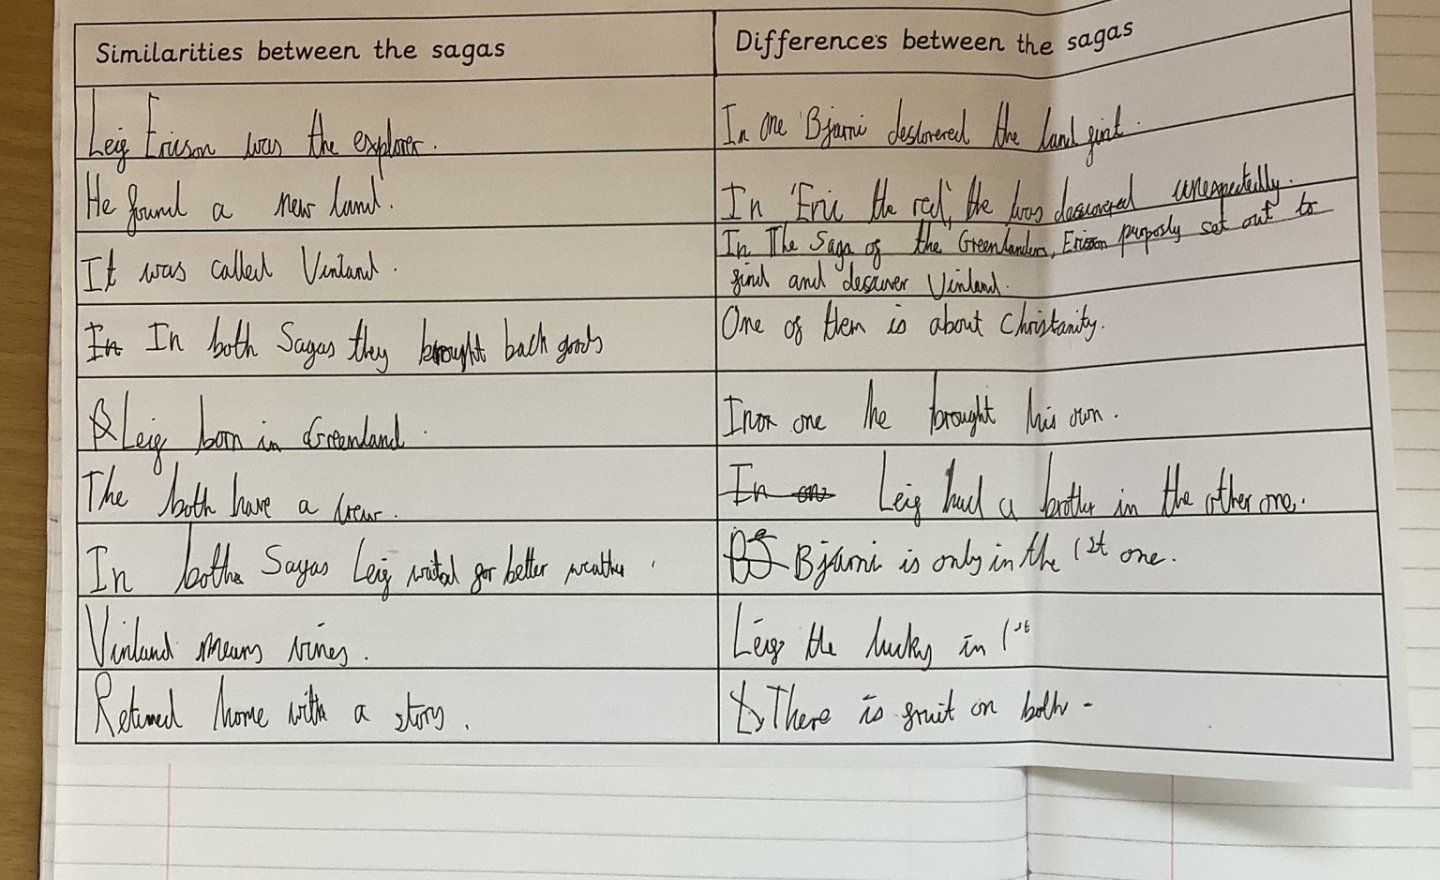 Similarities between the sagas
Differences between the sagas
Leif Ericson was the explorer.
In one Bjarni descovered the land first.
He found a new land.
In 'Eric the red', he was descovered unexpectedly.
It was called Vinland.
In The Saga of the Greenlanders, Ericson purposly set out to
find and descover Vinland.
In In both Sagas they brought back goods
One of them is about Christanity.
Leif born in Greenland.
In one he brought his own.
The both have a crew.
In one Leif had a brother in the other one.
In both Sagas Leif waited for better weather.
Bj Bjarni is only in the 1st one.
Vinland means vines.
Leif the lucky in 1st
Returned home with a story.
There is fruit on both -